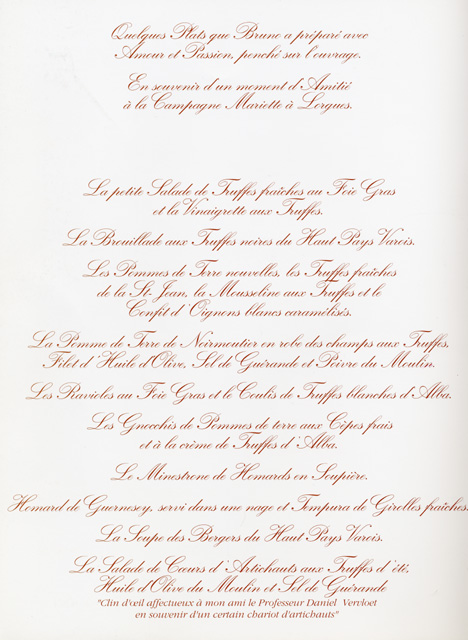 Quelques Plats que Bruno a préparé avec
Amour et Passion, penché sur l'ouvrage.
En souvenir d'un moment d'Amitié
à la Campagne Mariette à Lorgues.
La petite Salade de Truffes fraîches au Foie Gras
et la Vinaigrette aux Truffes.
La Brouillade aux Truffes noires du Haut Pays Varois.
Les Pommes de Terre nouvelles, les Truffes fraîches
de la St. Jean, la Mousseline aux Truffes et le
Confit d'Oignons blancs caramélisés.
La Pomme de Terre de Noirmoutier en robe des champs aux Truffes,
Filet d'Huile d'Olive, Sel de Guérande et Poivre du Moulin.
Les Ravioles au Foie Gras et le Coulis de Truffes blanches d'Alba.
Les Gnocchis de Pommes de terre aux Cèpes frais
et à la crème de Truffes d'Alba.
Le Minestrone de Homards en Soupière.
Homard de Guernesey, servi dans une nage et Tempura de Girolles fraîches.
La Soupe des Bergers du Haut Pays Varois.
La Salade de Cœurs d'Artichauts aux Truffes d'été,
Huile d'Olive du Moulin et Sel de Guérande
"Clin d'œil affectueux à mon ami le Professeur Daniel Vervloet
en souvenir d'un certain chariot d'artichauts"